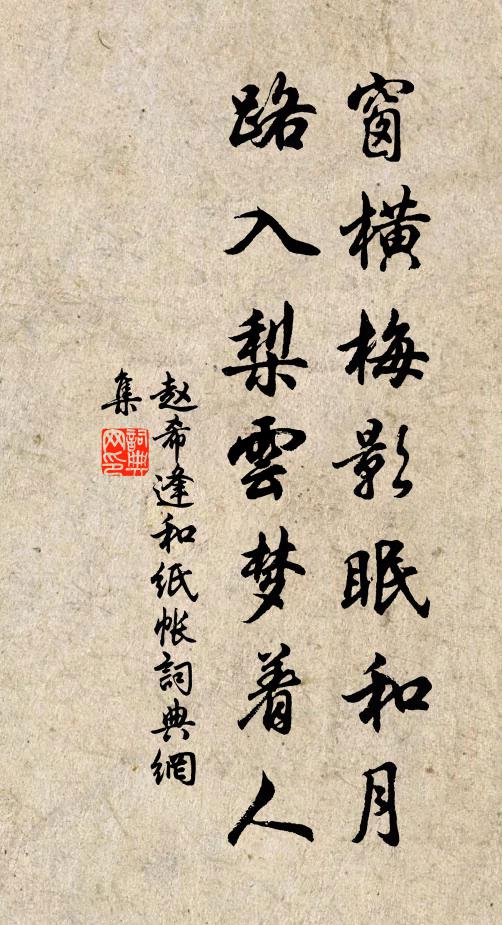 窗橫梅影眠和月
路入梨雲梦着人
赵希逢和纸帐詞典網
集
詞典网印